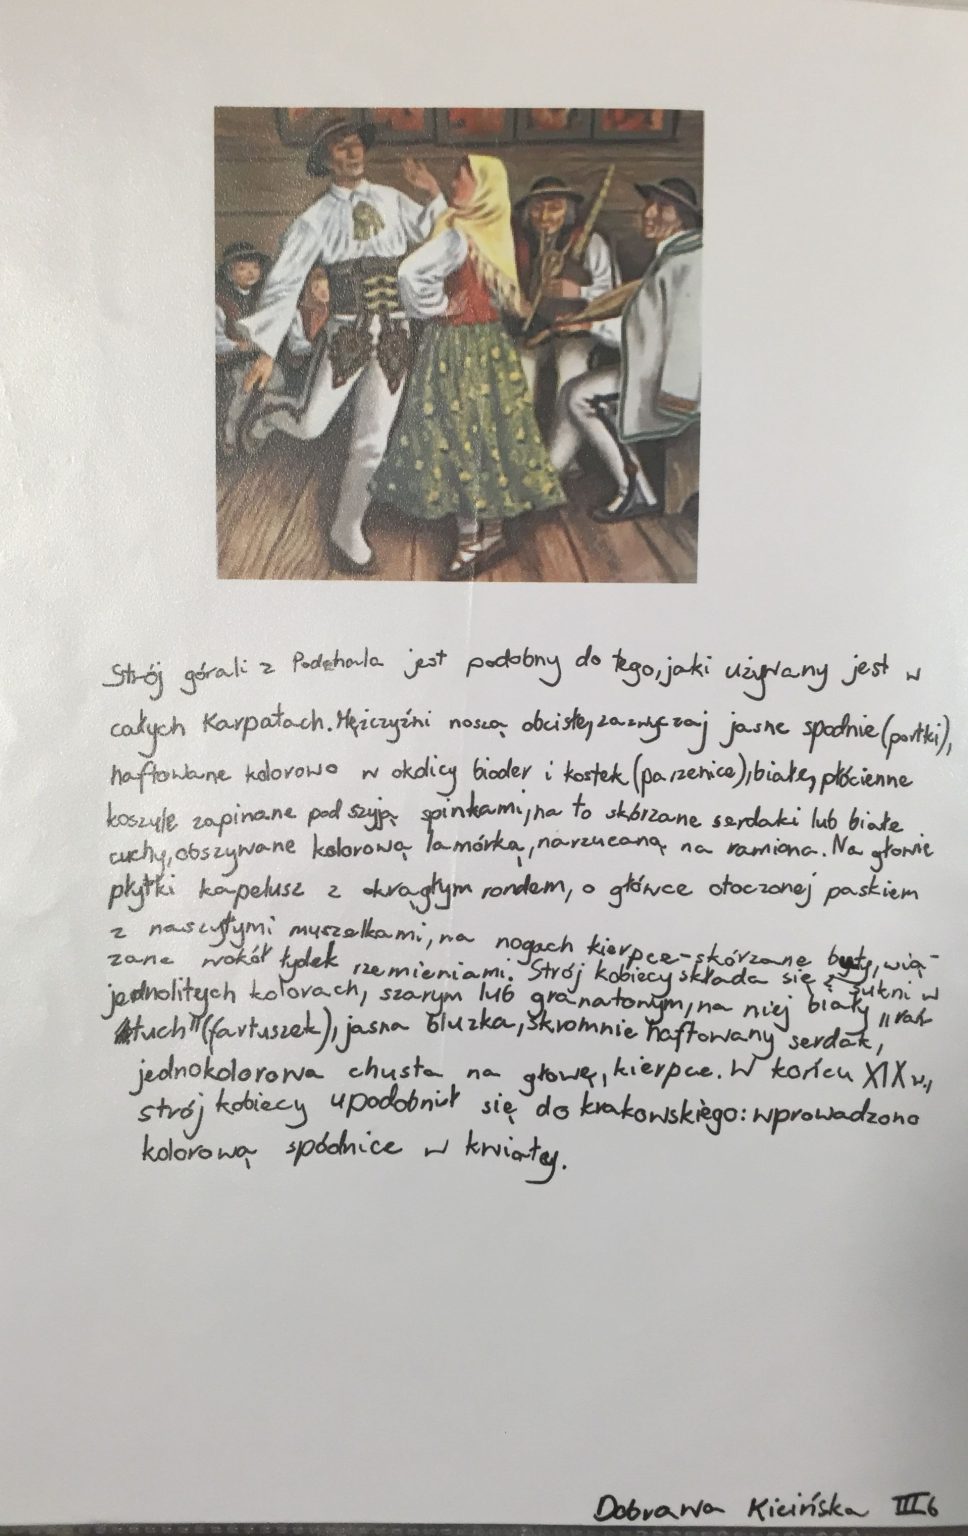 Strój górali z Podchala jest podobny do tego, jaki używany jest w
całych Karpatach. Mężczyźni noszą obcisłe, zazwyczaj jasne spodnie (portki),
haftowane kolorowo w okolicy bioder i kostek (parzenice), białe, płócienne
koszule zapinane pod szyją spinkami, na to skórzane serdaki lub białe
cuchy, obszywane kolorową lamórką, narzucaną na ramiona. Na głowie
płytki kapelusz z okrągłym rondem, o główce otoczonej paskiem
z naszytymi muszelkami, na nogach kierpce - skórzane buty, wią-
zane wokół łydek rzemieniami. Strój kobiecy składa się z sukni w
jednolitych kolorach, szarym lub granatowym, na niej biały "rań-
tuch" (fartuszek), jasna bluzka, skromnie haftowany serdak,
jednokolorowa chusta na głowę, kierpce. W końcu XIX w.,
strój kobiecy upodobnił się do krakowskiego: wprowadzono
kolorową spódnice w kwiaty.
Dobrawa Kicińska III6